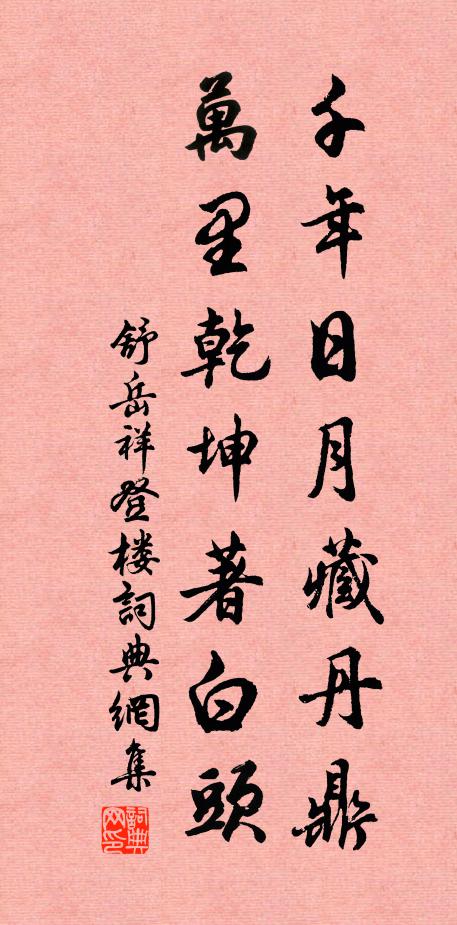 千年日月藏丹鼎
萬里乾坤著白頭
舒岳祥登楼詞典網集
詞典网印